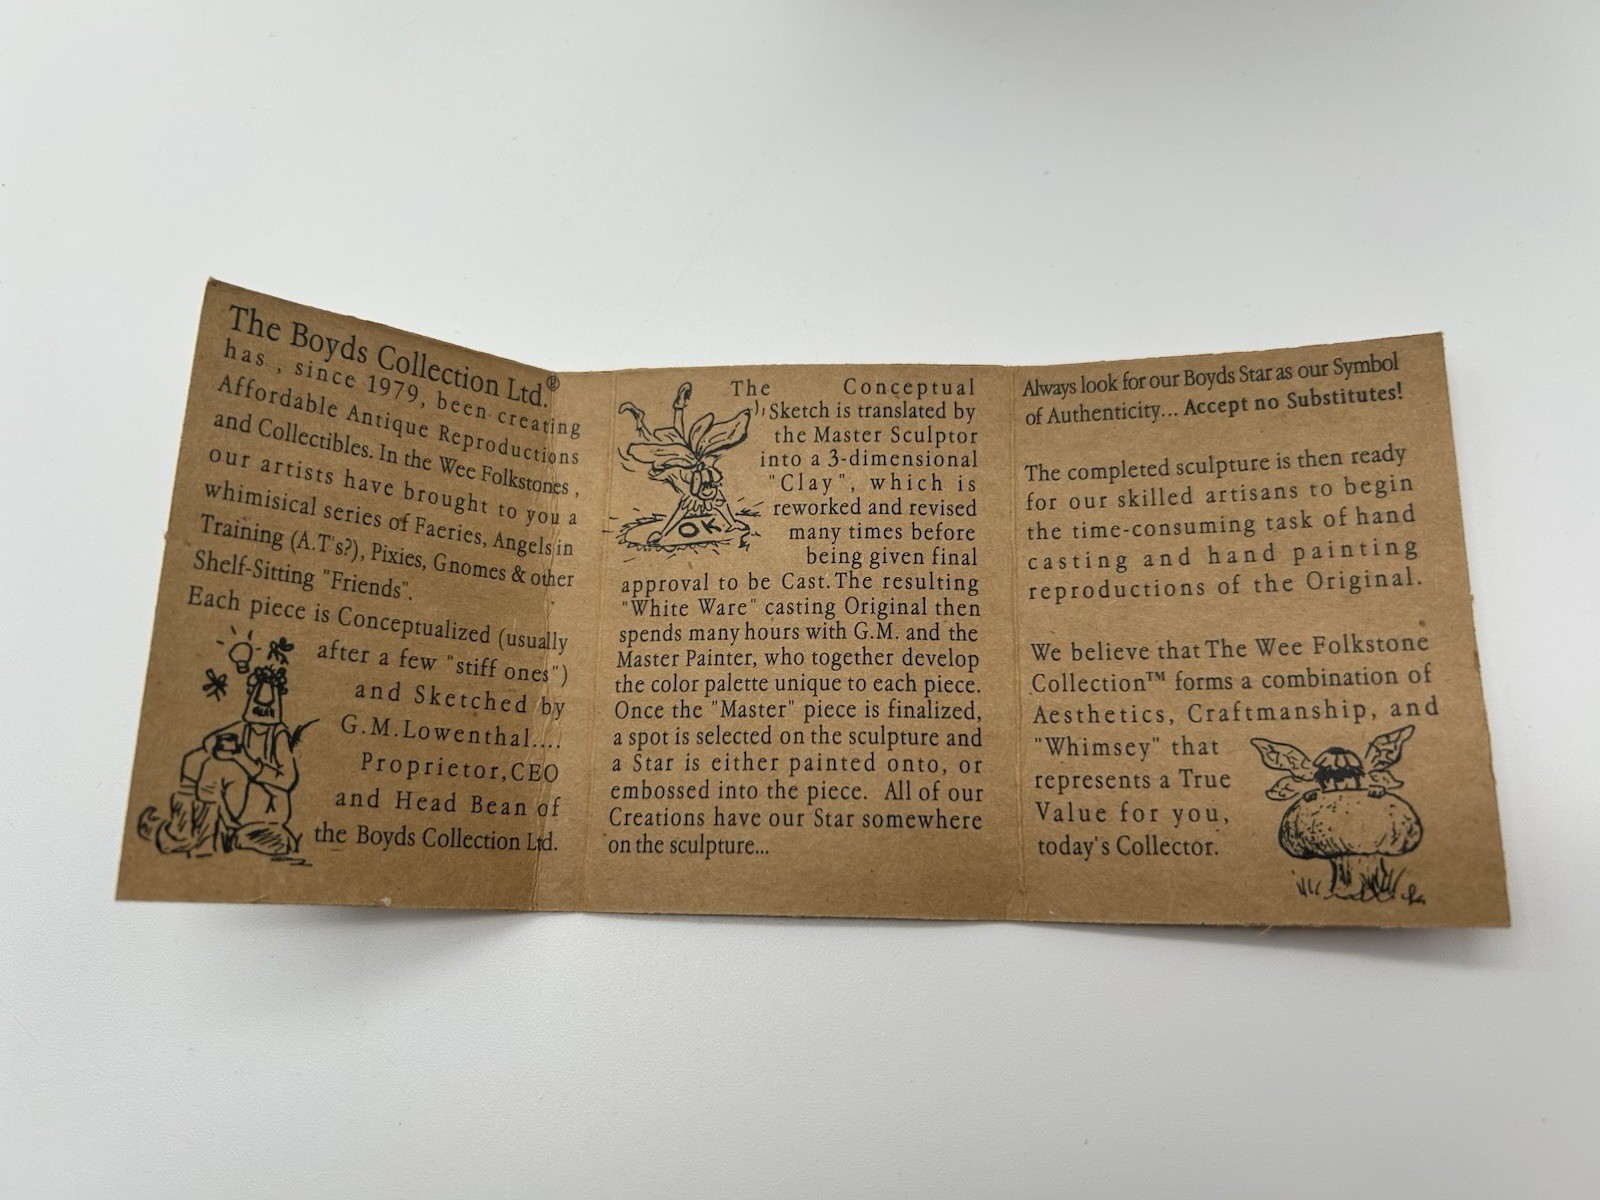 The Boyds Collection Ltd.®
has , since 1979, been creating
Affordable Antique Reproductions
and Collectibles. In the Wee Folkstones ,
our artists have brought to you a
whimisical series of Faeries, Angels in
Training (A.T's?), Pixies, Gnomes & other
Shelf-Sitting "Friends".
Each piece is Conceptualized (usually
after a few "stiff ones")
and Sketched by
G.M.Lowenthal....
Proprietor,CEO
and Head Bean of
the Boyds Collection Ltd.
The Conceptual
Sketch is translated by
the Master Sculptor
into a 3-dimensional
"Clay", which is
reworked and revised
many times before
being given final
approval to be Cast. The resulting
"White Ware" casting Original then
spends many hours with G.M. and the
Master Painter, who together develop
the color palette unique to each piece.
Once the "Master" piece is finalized,
a spot is selected on the sculpture and
a Star is either painted onto, or
embossed into the piece. All of our
Creations have our Star somewhere
on the sculpture...
OK
Always look for our Boyds Star as our Symbol
of Authenticity... Accept no Substitutes!
The completed sculpture is then ready
for our skilled artisans to begin
the time-consuming task of hand
casting and hand painting
reproductions of the Original.
We believe that The Wee Folkstone
Collection™ forms a combination of
Aesthetics, Craftmanship, and
"Whimsey" that
represents a True
Value for you,
today's Collector.